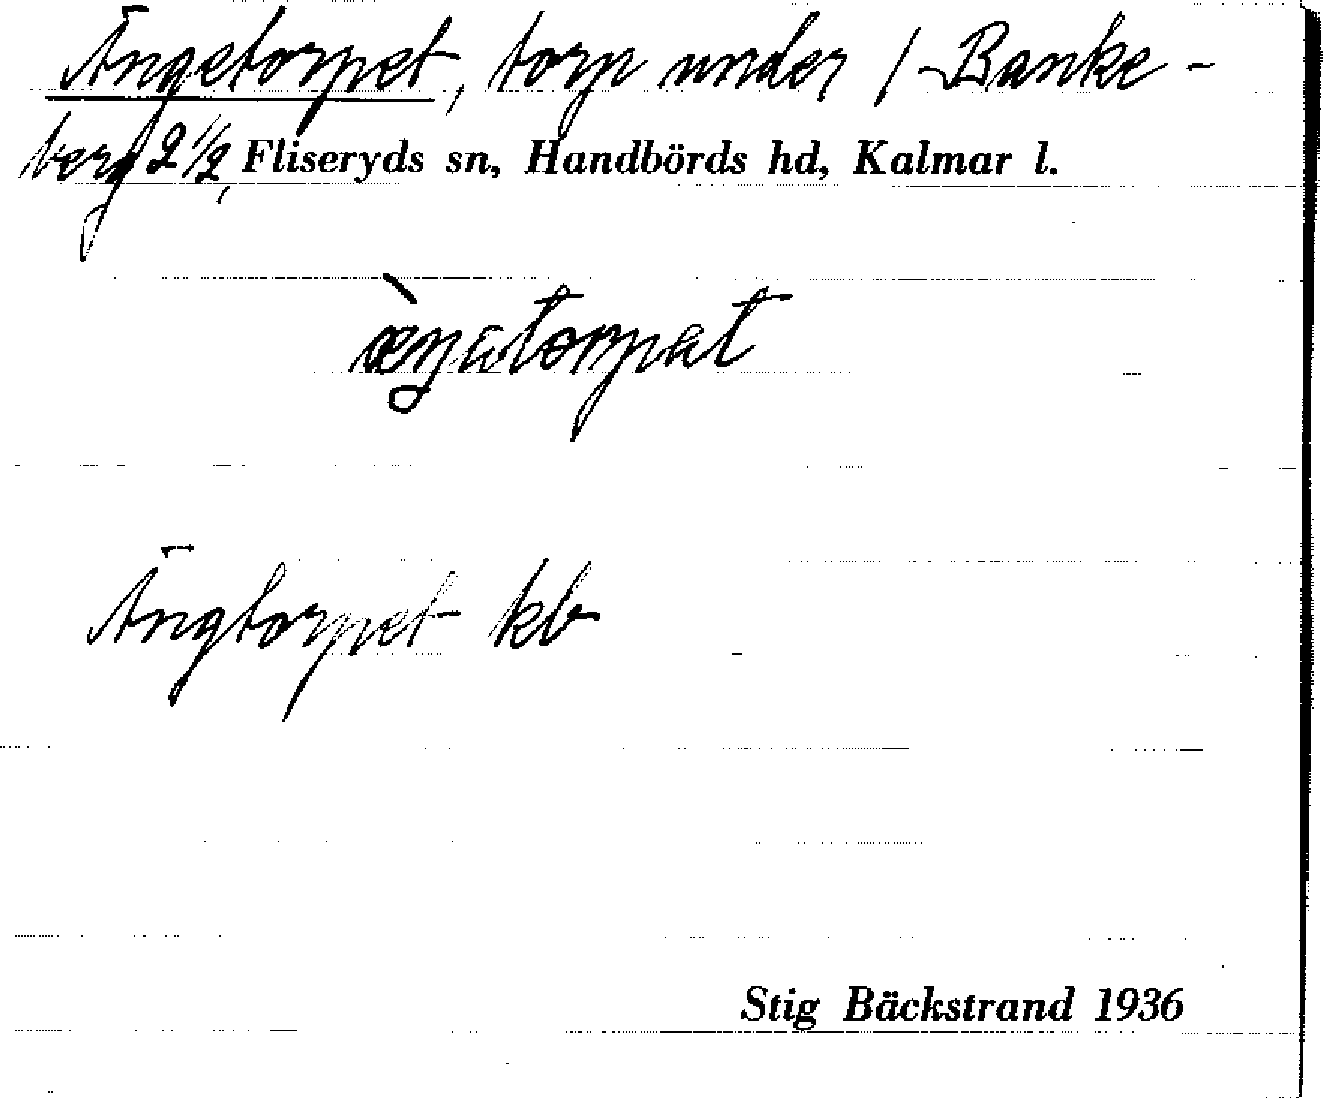 Ängetorpet, torp under / Banke-
berg 2 1/2, Fliseryds sn, Handbörds hd, Kalmar l.
Ängtorpet kb
Stig Bäckstrand 1936